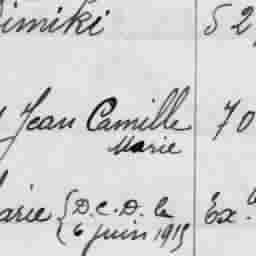 imiki 52
Jean Camille 70
Marie
arie { D.C.D. le Ex.
6 juin 1915